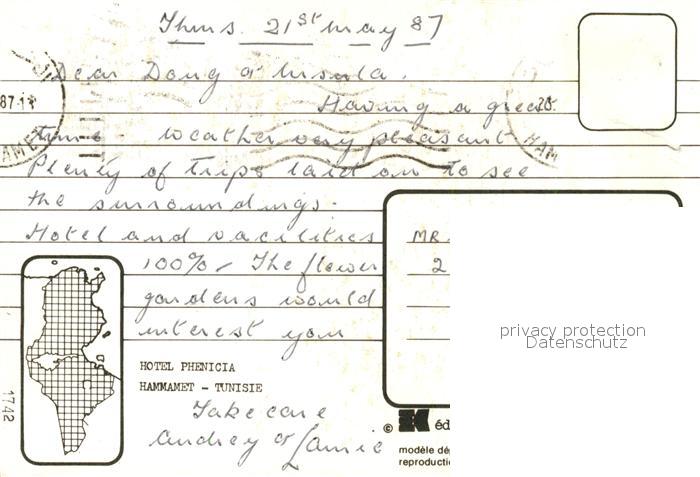 Thurs. 21st may 87
Dear Doug & Ursula.
Having a great
time - weather very pleasant
Plenty of trips laid on to see
the surroundings.
Hotel and vacilities
100% - The flower
gardens would
interest you
HOTEL PHENICIA
HAMMAMET - TUNISIE
Take care
Audrey &
MR
2
privacy protection
Datenschutz
1742
© éd
modèle dé
reproducti
87-1
AME
20
HAM